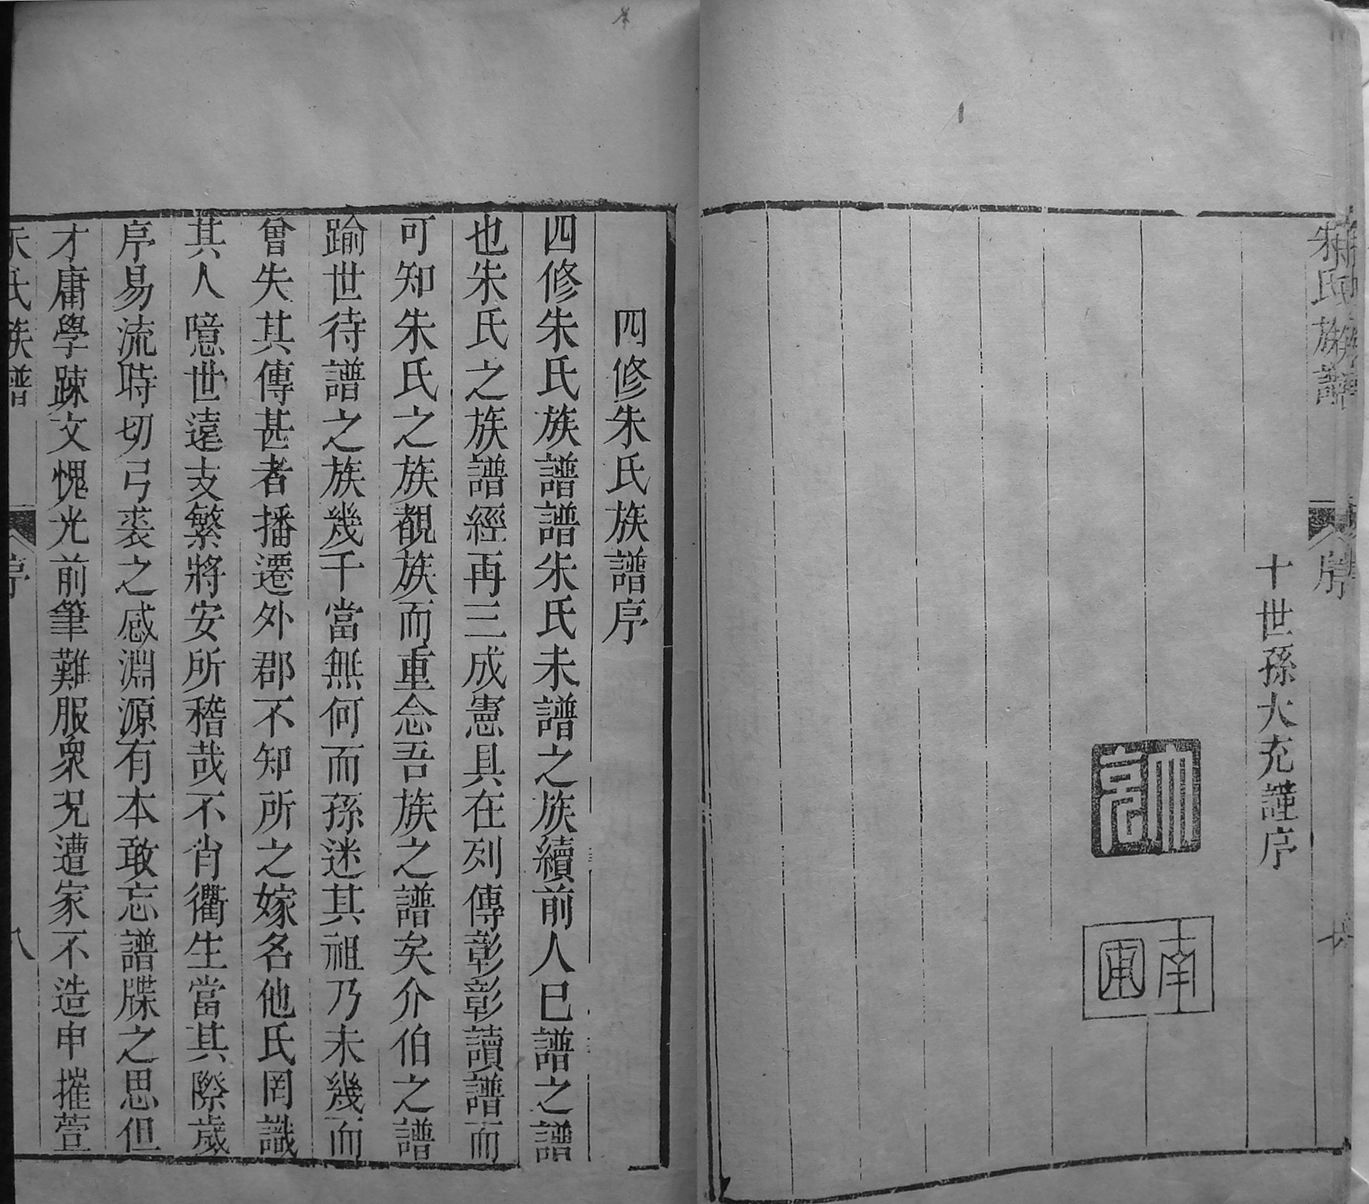 朱氏族譜
序
十世孫大充謹序
南圃
四修朱氏族譜序
四修朱氏族譜譜朱氏未譜之族續前人已譜之譜
也朱氏之族譜經再三成憲具在列傳彰彰讀譜而
可知朱氏之族覩族而重念吾族之譜矣介伯之譜
踰世待譜之族幾千當無何而孫迷其祖乃未幾而
曾失其傳甚者播遷外郡不知所之嫁名他氏罔識
其人噫世遠支繁將安所稽哉不肖衢生當其際歲
序易流時切弓裘之感淵源有本敢忘譜牒之思但
才庸學踈文愧光前筆難服眾況遭家不造申摧萱
朱氏族譜
序
八